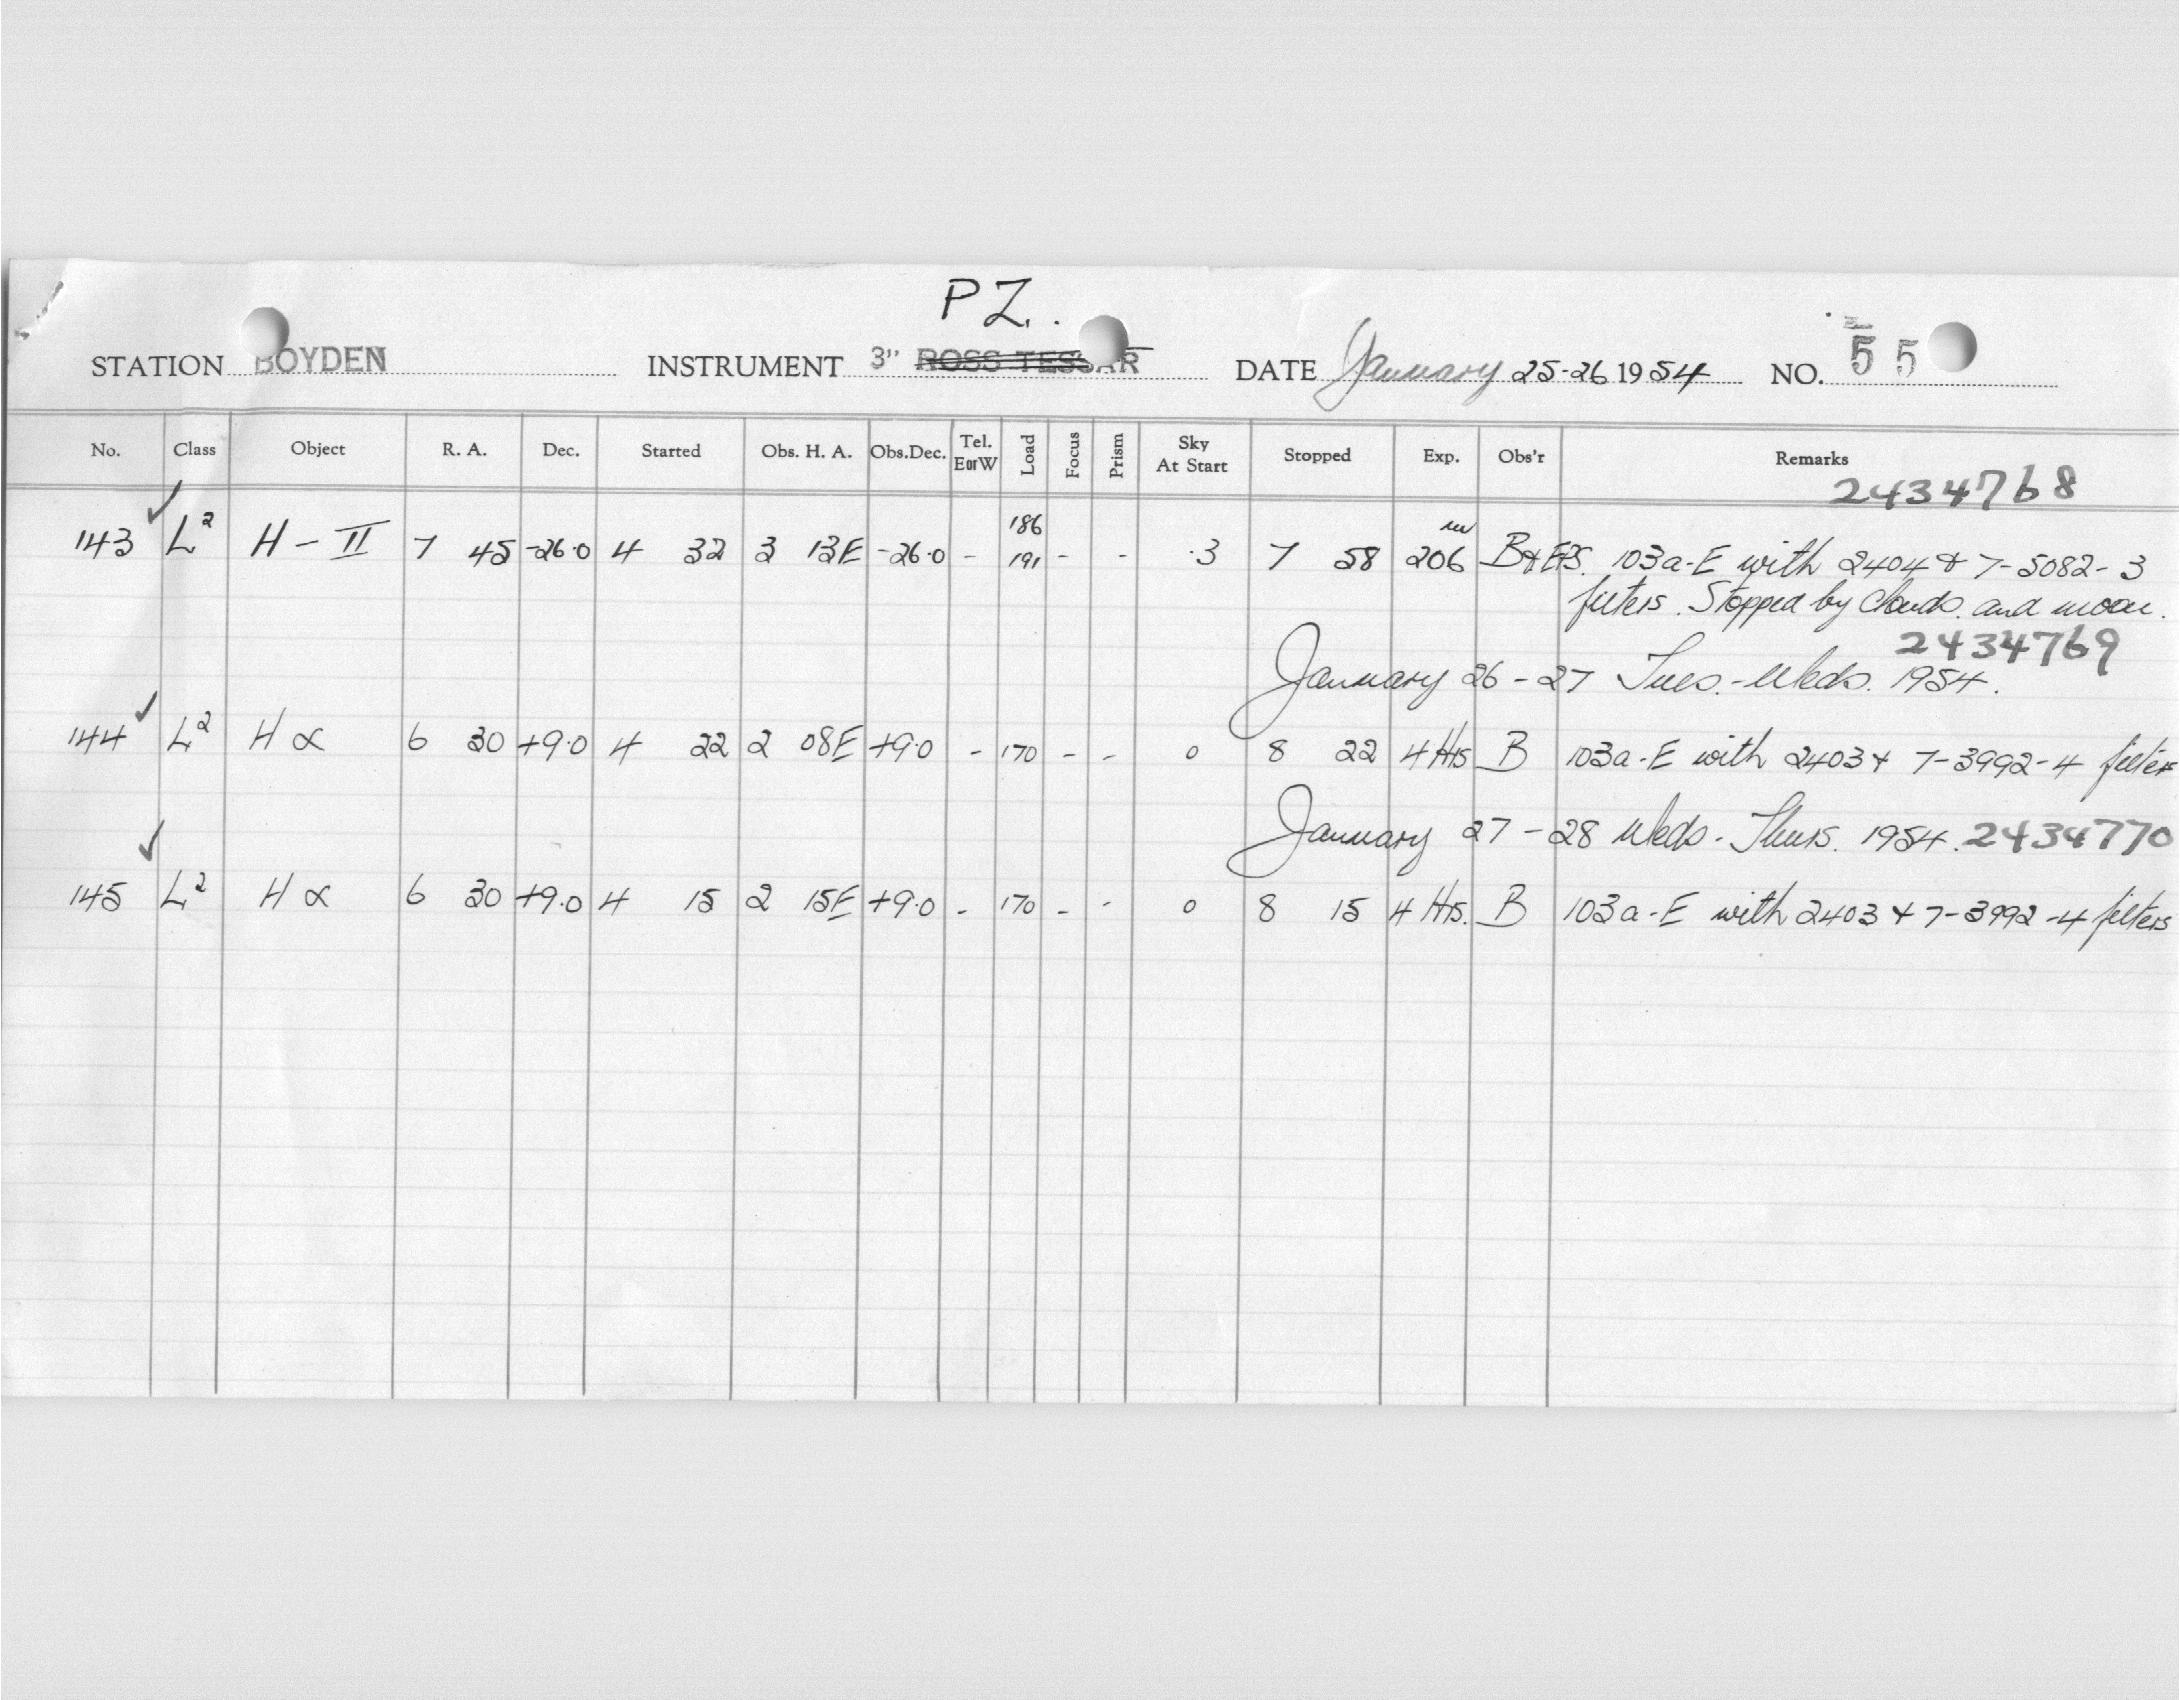 PZ.
STATION BOYDEN INSTRUMENT 3" ROSS TESSAR DATE January 25-26 1954 NO. 55
No. Class Object R. A. Dec. Started Obs. H. A. Obs.Dec. Tel. E or W Load Focus Prism Sky At Start Stopped Exp. Obs'r Remarks
2434768
143 L² H-II 7 45 -26.0 4 32 3 13E -26.0 - 186 191 - - .3 7 58 206 m B & EPS. 103a-E with 2404 & 7-5082-3
filters. Stopped by clouds and moon.
2434769
January 26-27 Tues.-Weds. 1954.
144 L² H α 6 30 +9.0 4 22 2 08E +9.0 - 170 - - 0 8 22 4 Hrs B 103a-E with 2403 & 7-3992-4 filter
January 27-28 Weds.-Thurs. 1954. 2434770
145 L² H α 6 30 +9.0 4 15 2 15E +9.0 - 170 - - 0 8 15 4 Hrs. B 103a-E with 2403 & 7-3992-4 filters